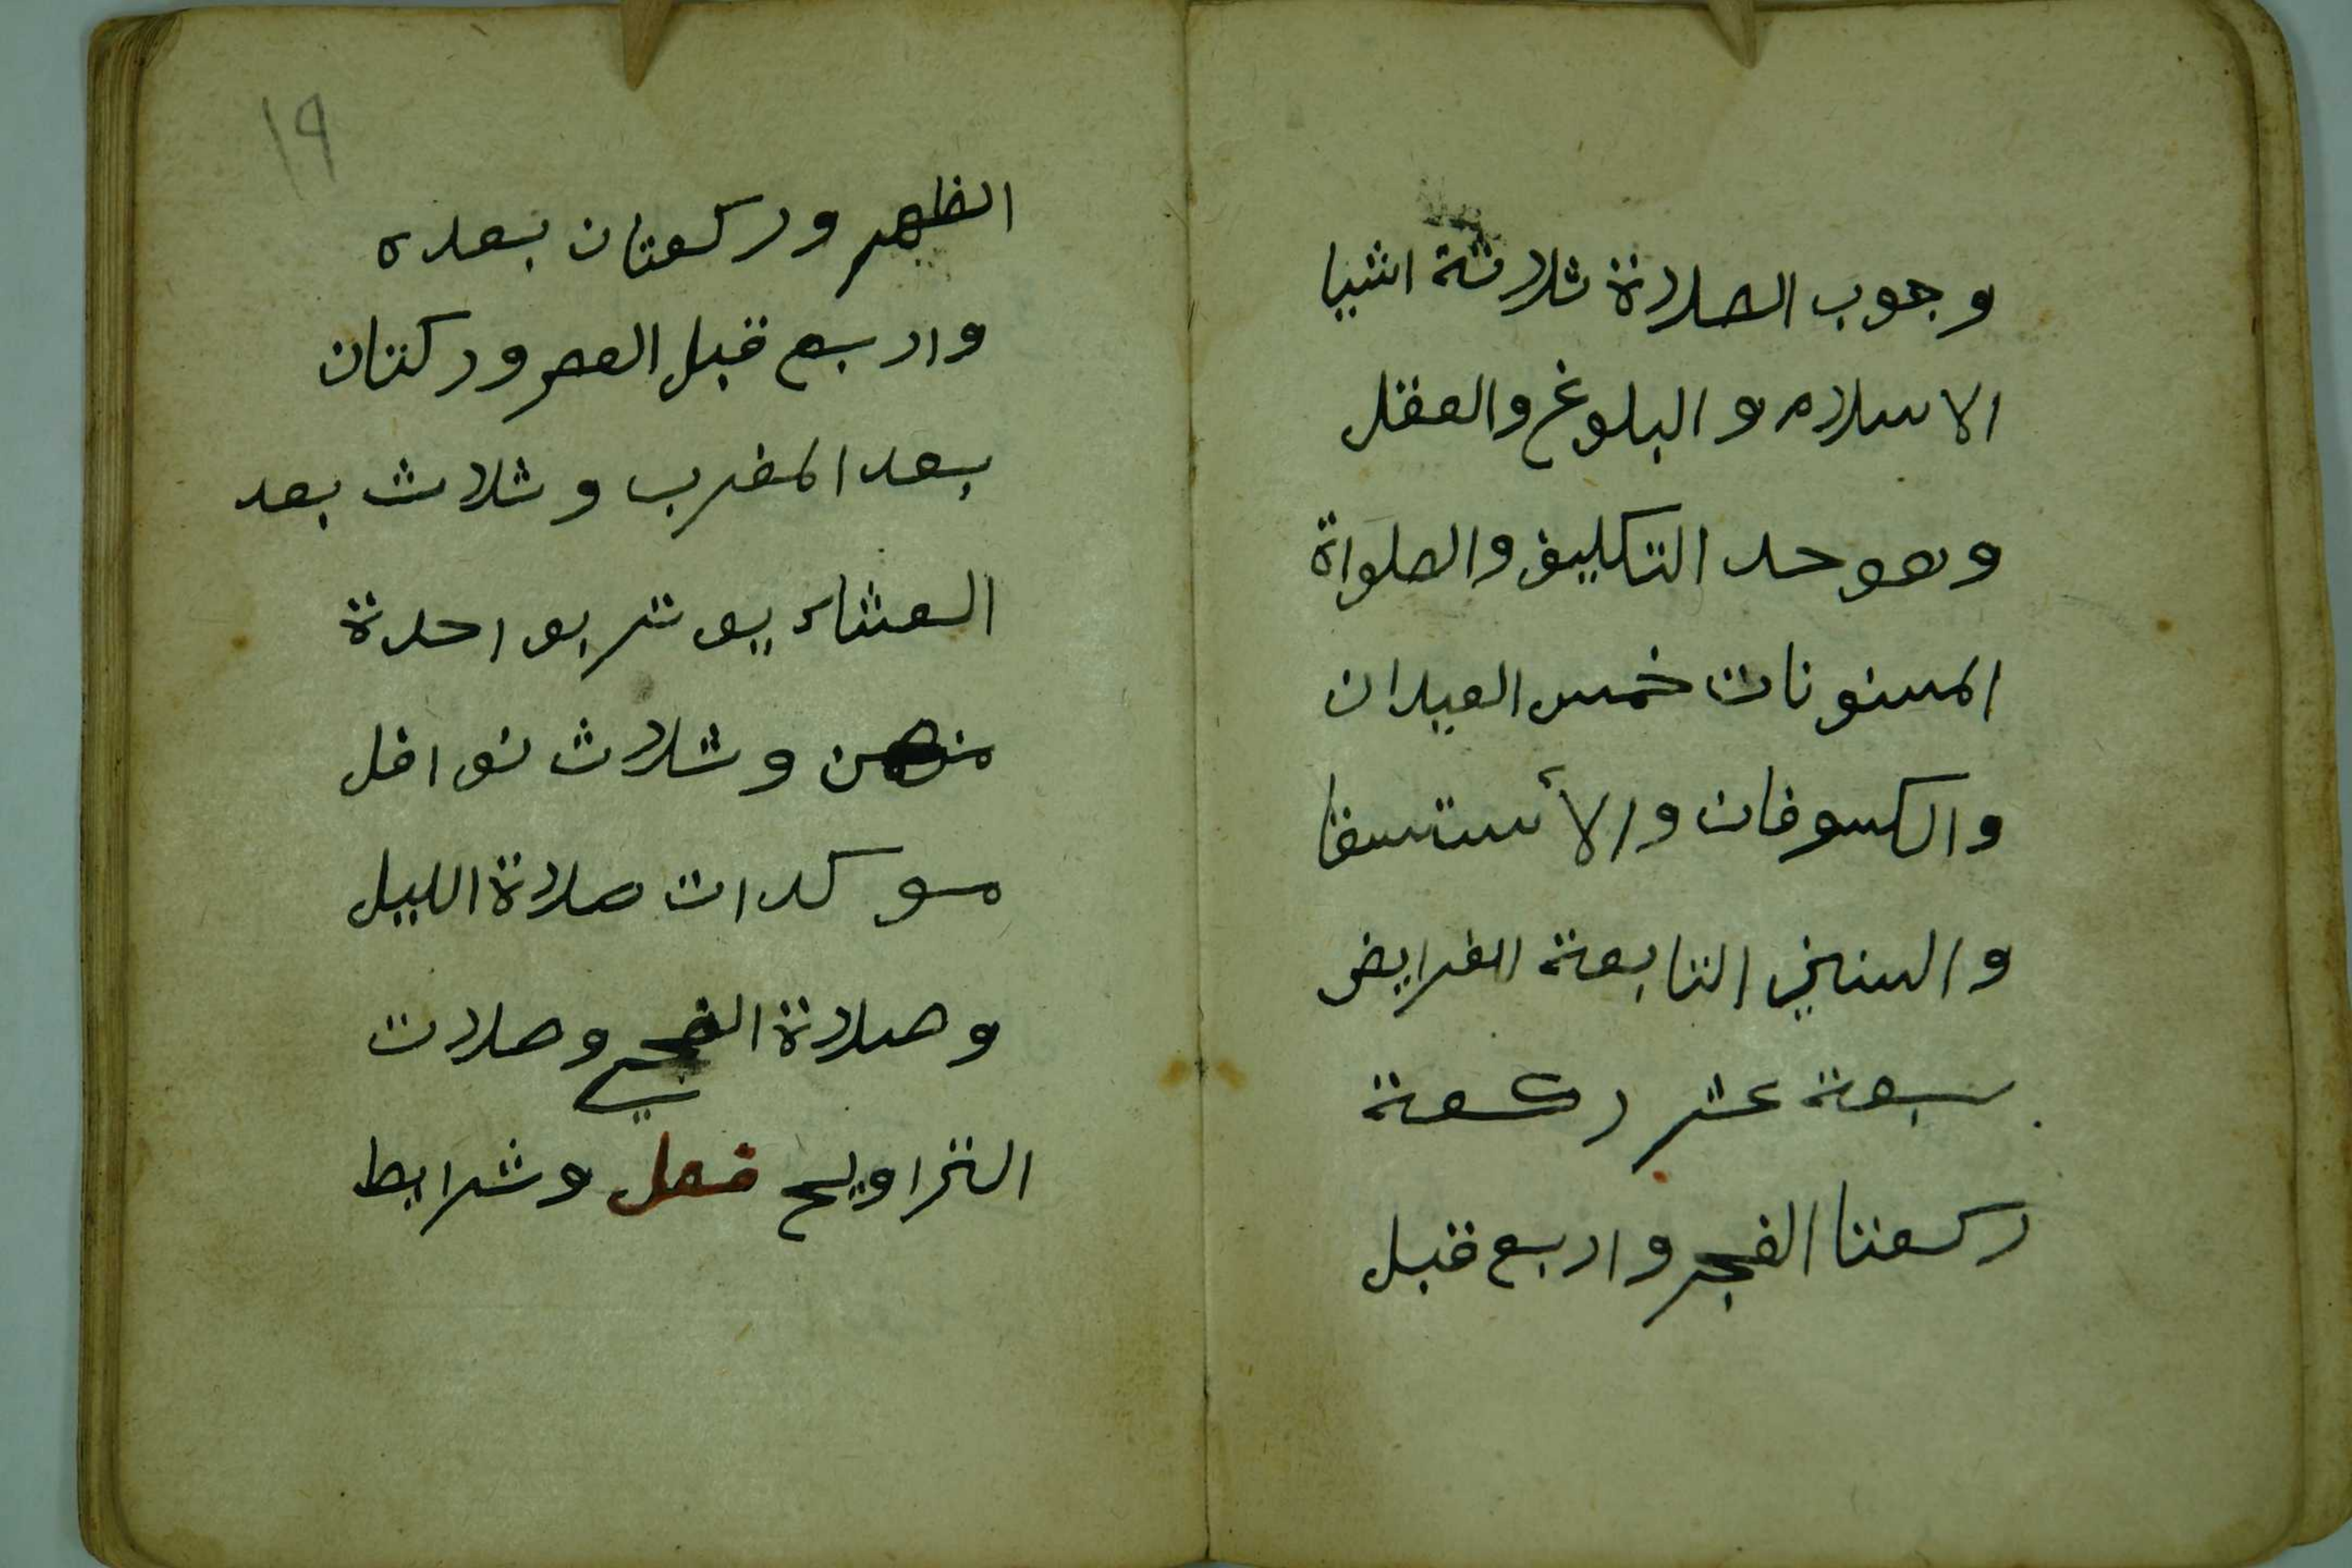 وجوب الصلاة ثلاثة اشيا
الاسلام والبلوغ والعقل
وهو حد التكليف والصلواة
المسنونات خمس العيدان
والكسوفان والأستسقا
والسنن التابعة الفرايض
سبعة عشر ركعة
ركعتا الفجر واربع قبل
١٩
الظهر وركعتان بعده
واربع قبل العصر وركتان
بعد المغرب وثلاث بعد
العشاء يوتر بواحدة
منهن وثلاث نوافل
موكدات صلاة الليل
وصلاة الضحي وصلات
التراويح فصل وشرايط